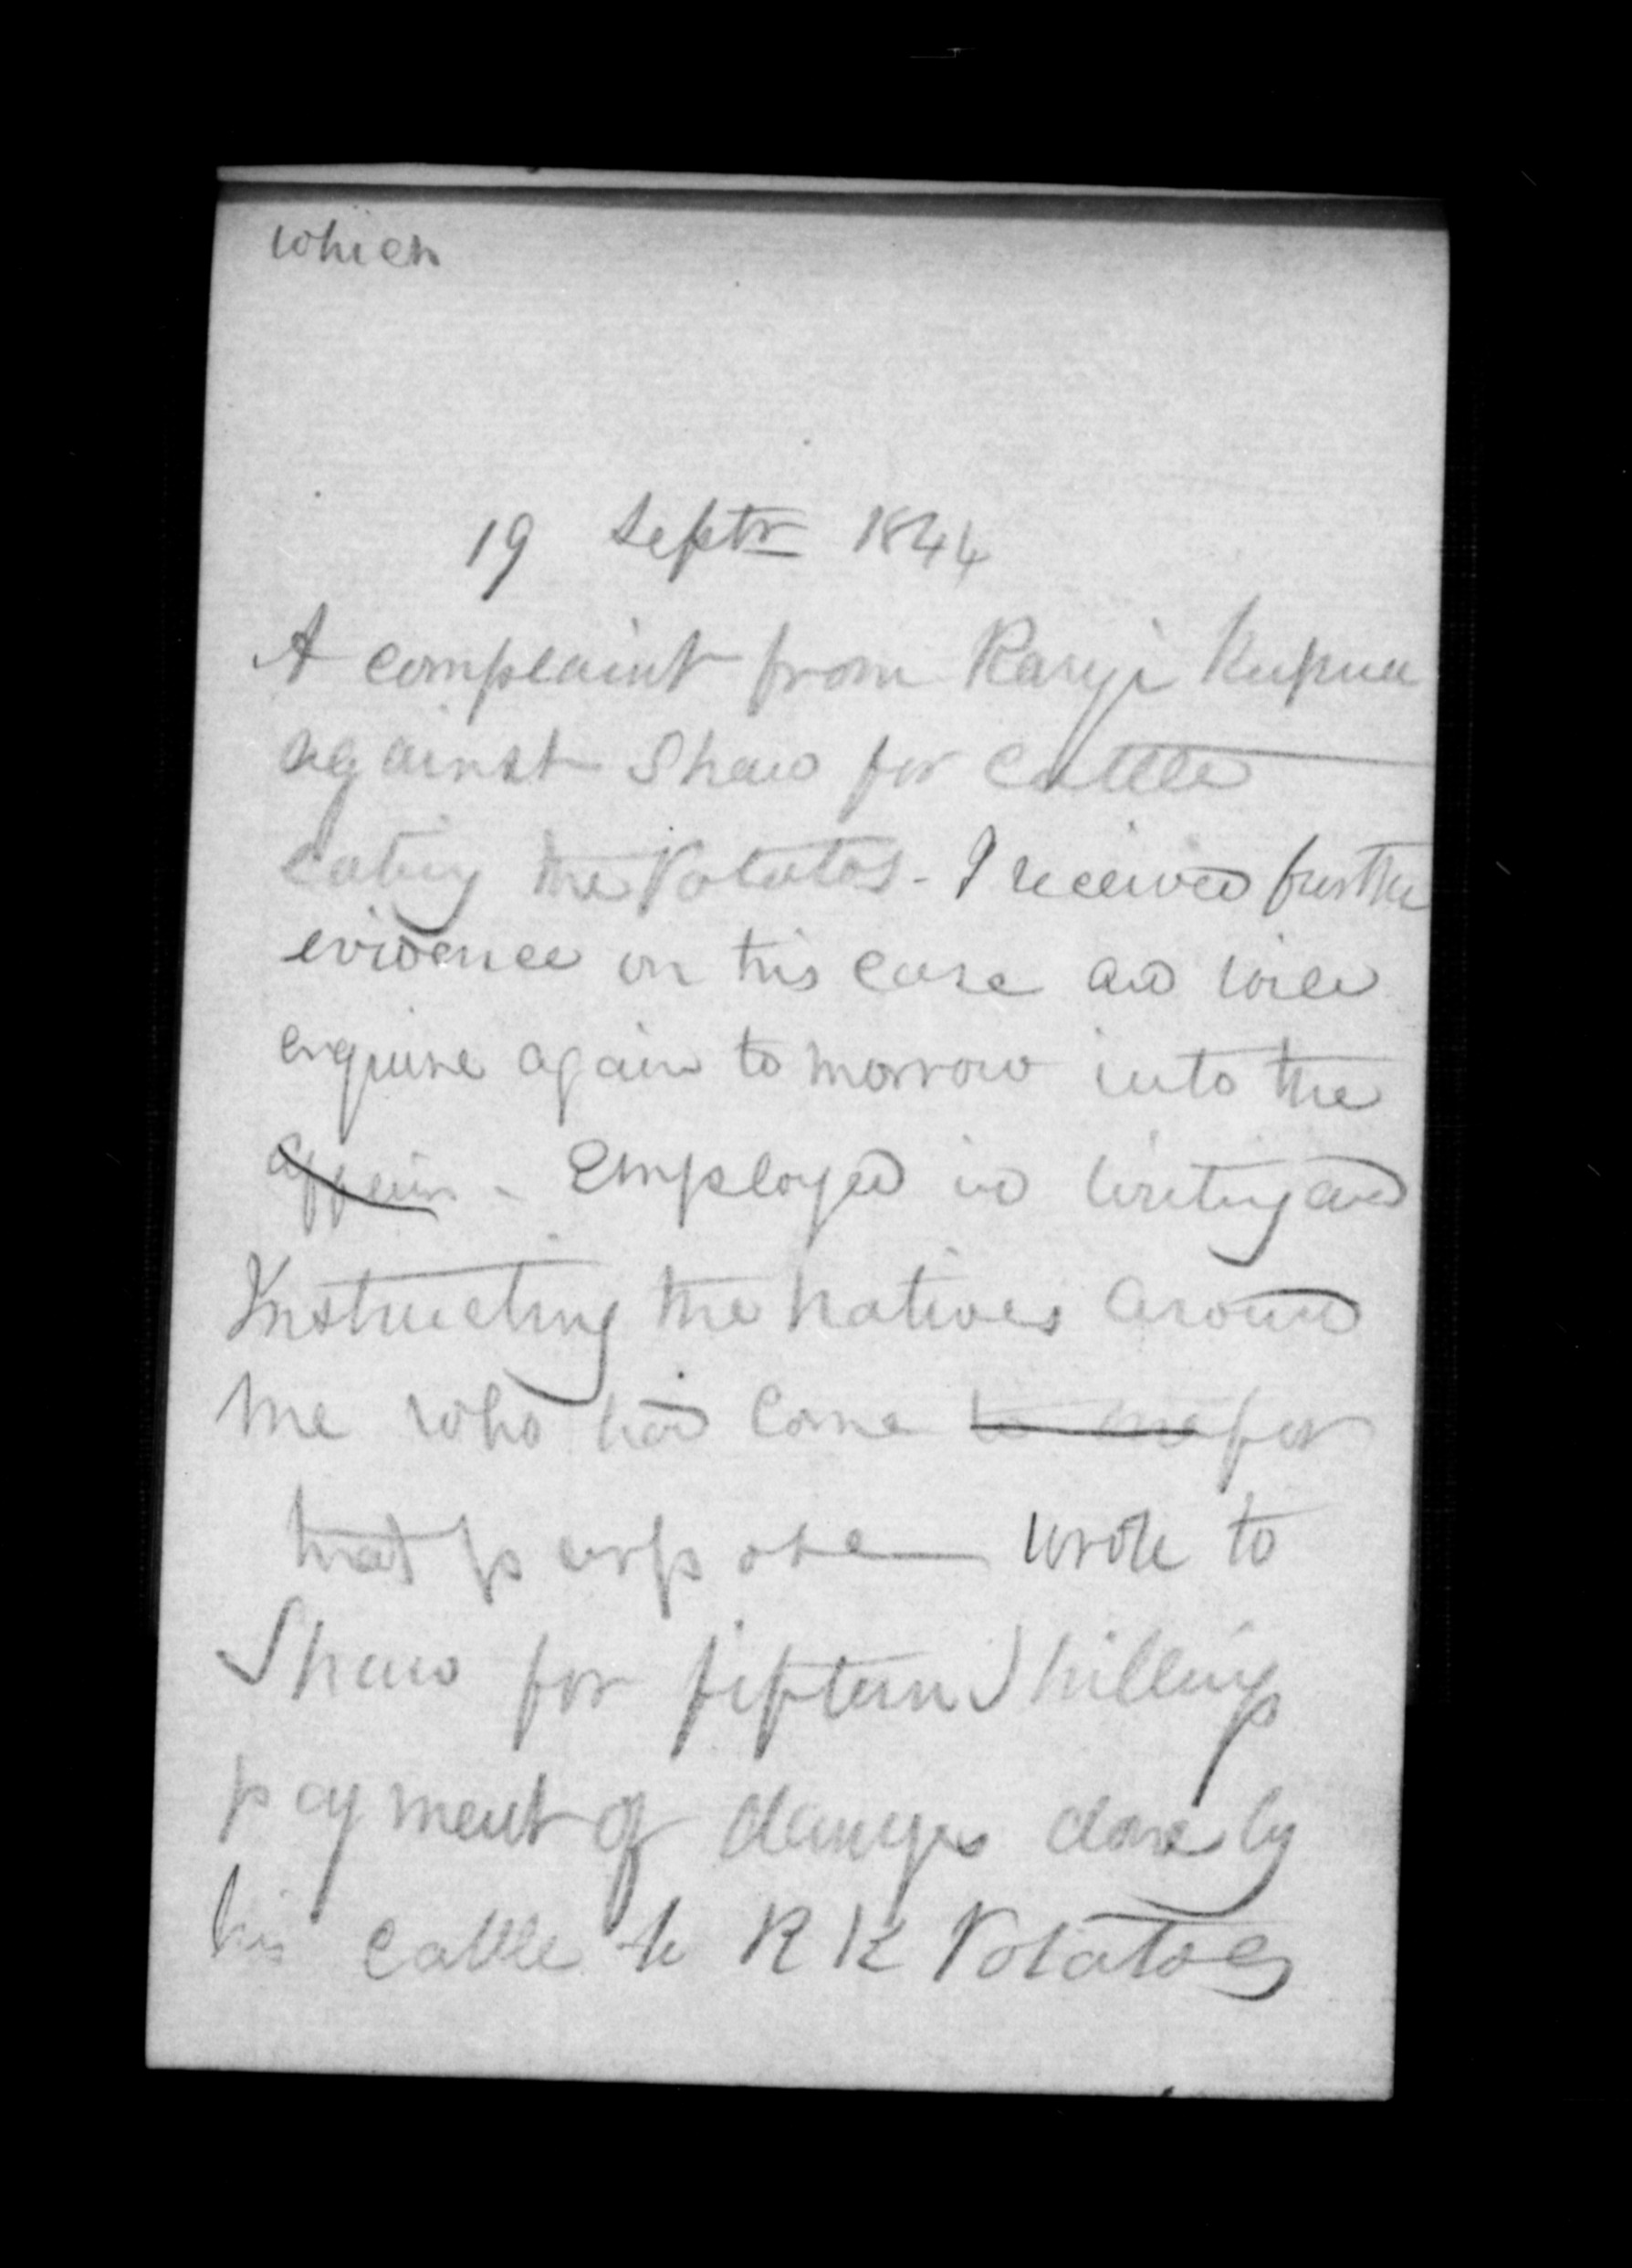 which
19 Septr 1844
A complaint from Rangi Kupua
against Shaw for Cattle
eating the Potatos - I received further
evidence on this case and will
enquire again to morrow into the
affair - Employed in writing and
Instructing the natives around
me who had come to me for
that purpose — wrote to
Shaw for fifteen Shillings
payment of damages done by
his cattle to R K Potatoes